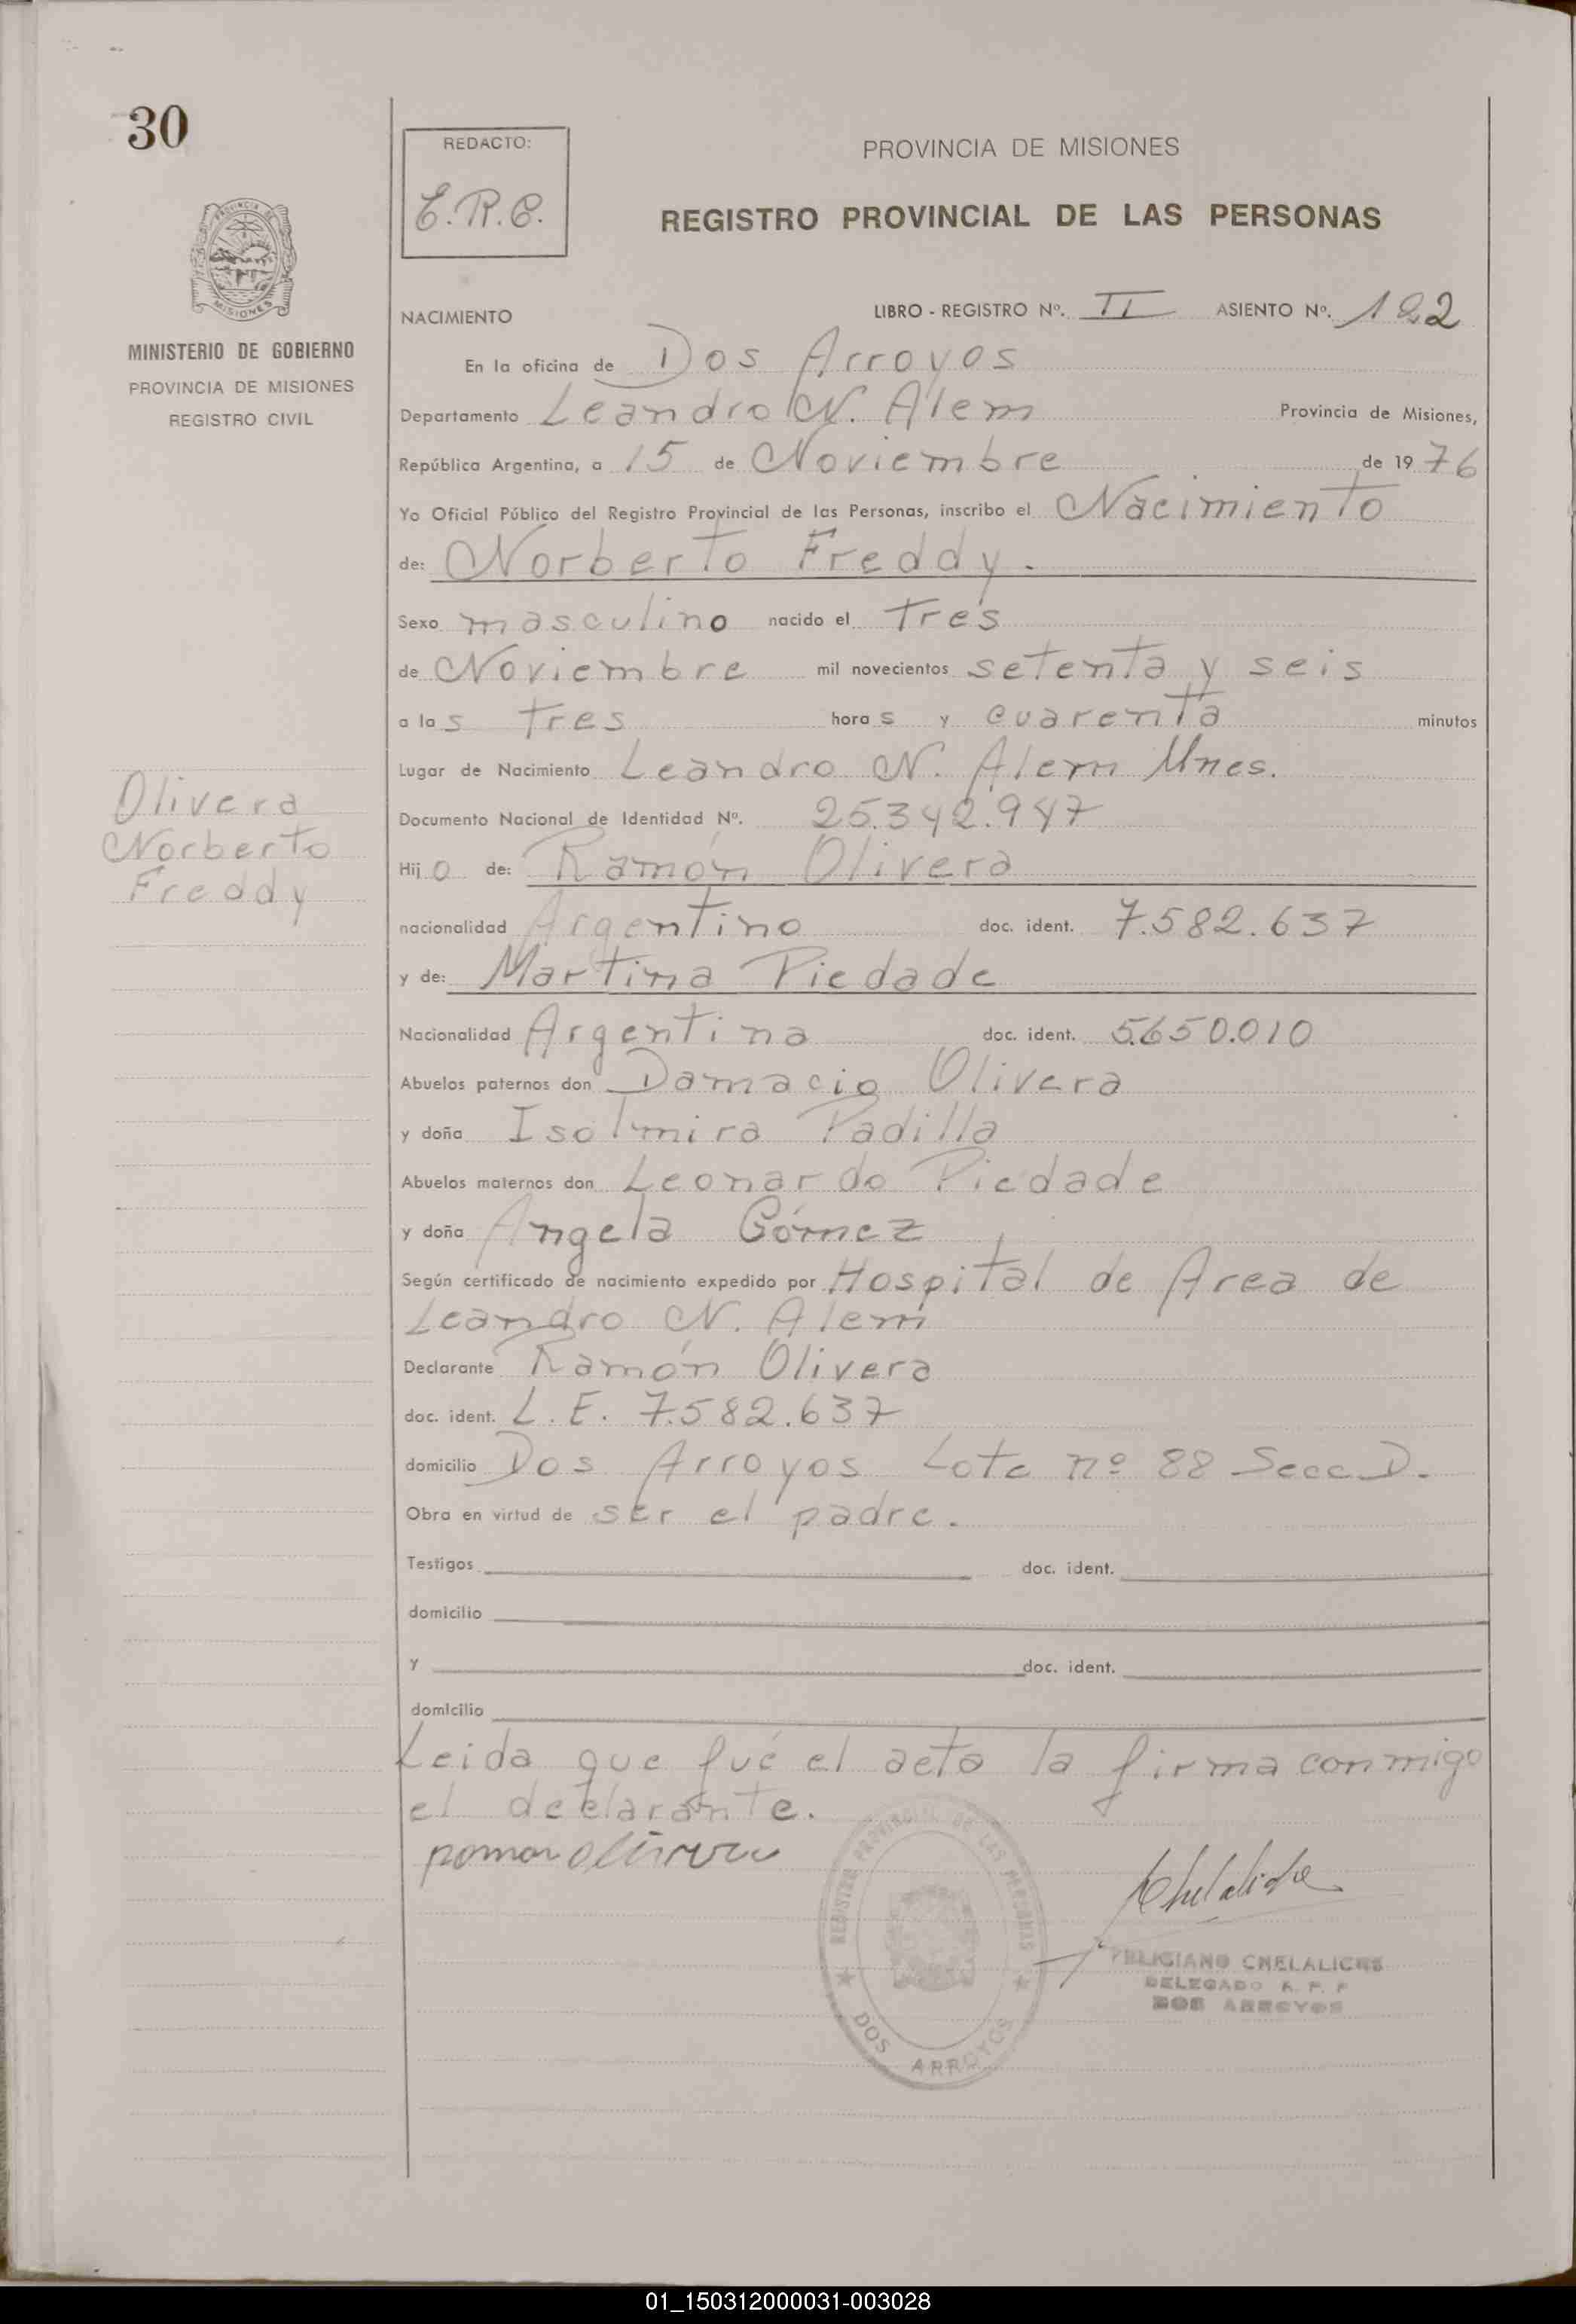 30
PROVINCIA DE
MISIONES
MINISTERIO DE GOBIERNO
PROVINCIA DE MISIONES
REGISTRO CIVIL
Olivera
Norberto
Freddy
REDACTO:
PROVINCIA DE MISIONES
REGISTRO PROVINCIAL DE LAS PERSONAS
NACIMIENTO LIBRO - REGISTRO Nº. II ASIENTO Nº. 122
En la oficina de Dos Arroyos
Departamento Leandro N. Alem Provincia de Misiones,
República Argentina, a 15 de Noviembre de 1976
Yo Oficial Público del Registro Provincial de las Personas, inscribo el Nacimiento
de: Norberto Freddy.
Sexo masculino nacido el Tres
de Noviembre mil novecientos setenta y seis
a las tres horas y cuarenta minutos
Lugar de Nacimiento Leandro N. Alem Mnes.
Documento Nacional de Identidad Nº. 25.342.947
Hijo de: Ramón Olivera
nacionalidad Argentino doc. ident. 7.582.637
y de: Martina Piedade
Nacionalidad Argentina doc. ident. 5.650.010
Abuelos paternos don Damacio Olivera
y doña Isolmira Padilla
Abuelos maternos don Leonardo Piedade
y doña Angela Gómez
Según certificado de nacimiento expedido por Hospital de Area de
Leandro N. Alem
Declarante Ramón Olivera
doc. ident. L.E. 7.582.637
domicilio Dos Arroyos Lote nº 88 Secc D.
Obra en virtud de ser el padre.
Testigos doc. ident.
domicilio
y doc. ident.
domicilio
Leida que fué el acta la firma conmigo
el declarante.
REGISTRO PROVINCIAL DE LAS PERSONAS
DOS ARROYOS
FELICIANO CHELALICHE
DELEGADO R. P. P
DOS ARROYOS
01_150312000031-003028